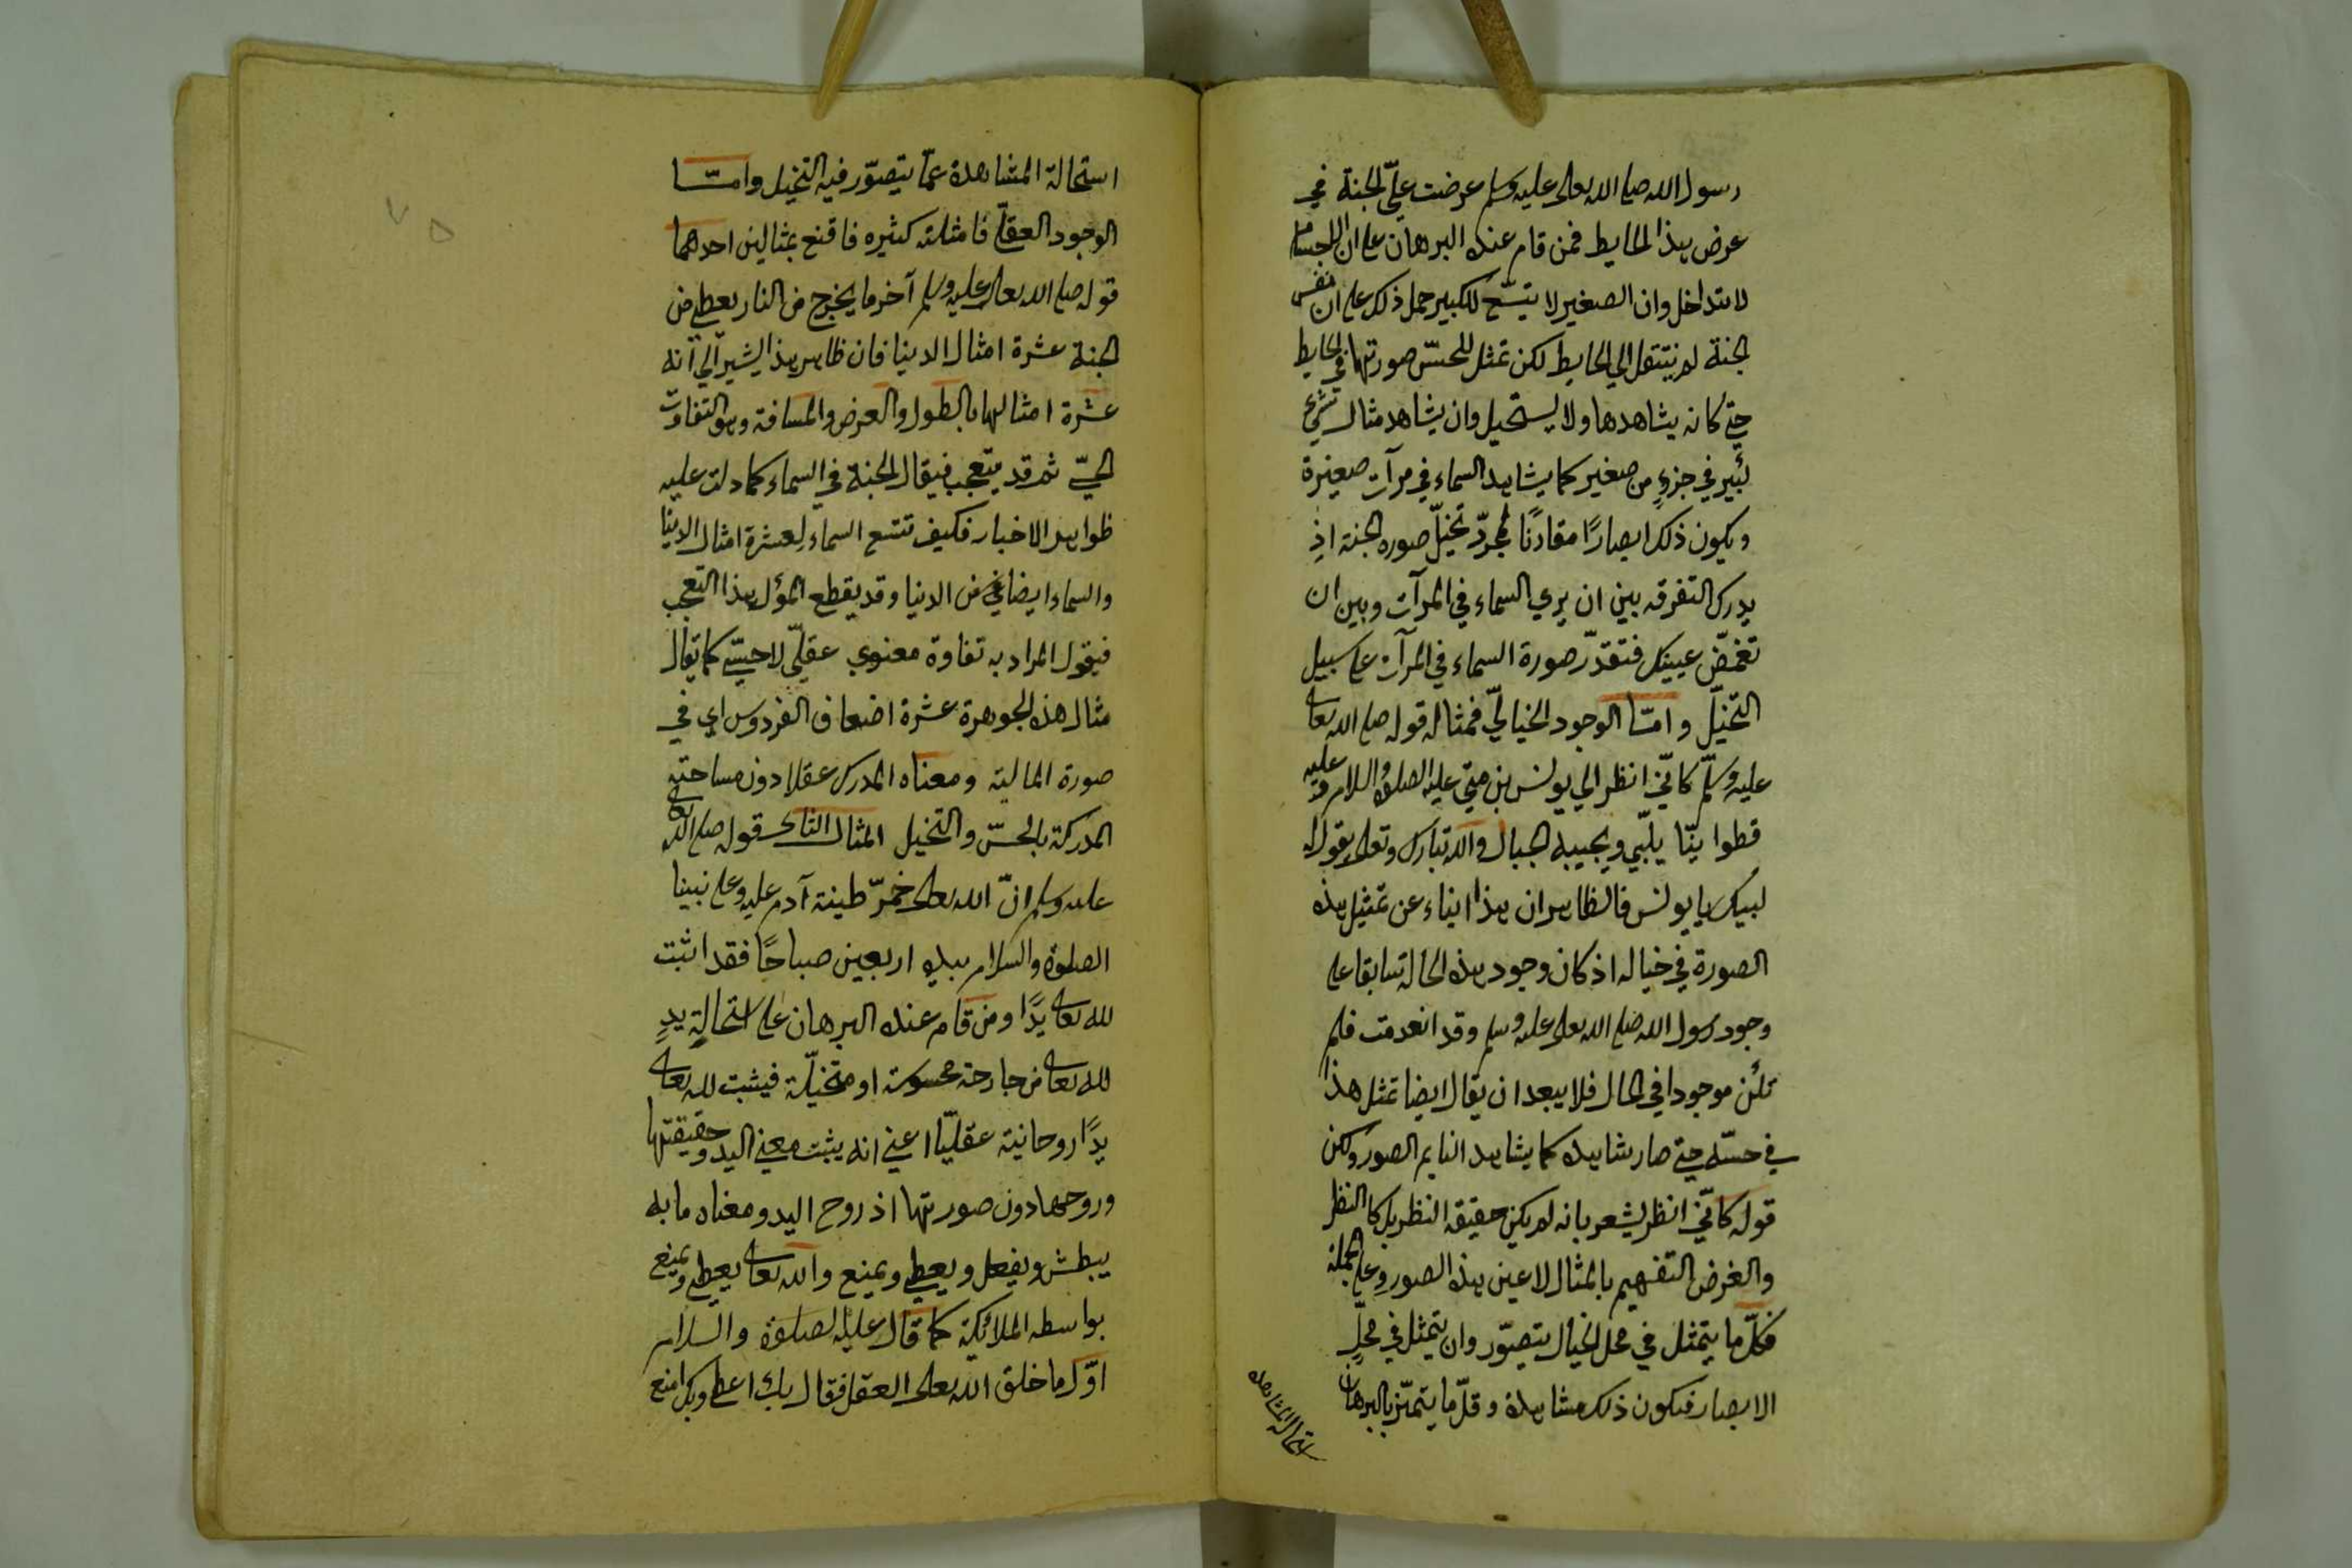 رسول الله صلى الله تعالى عليه وسلم عرضت عليّ الجنة في
عرض هذا الحايط فمن قام عنده البرهان على ان الاجسام
لا تتداخل وان الصغير لا يتسع للكبير حمل ذلك على ان نفس
الجنة لم ينتقل الي الحايط لكن تمثل للحسّ صورتها في الحايط
حتى كانه يشاهدها ولا يستحيل وان يشاهد مثال شيء
كبير في جزءٍ من صغير كما يشاهد السماء في مرآت صغيرة
ويكون ذلك ابصارًا مقارنًا لمجرّد تخيّل صورة الجنة اذ
يدرك التفرقه بين ان يري السماء في المرآت وبين ان
تغمّض عينيك فتقدّر صورة السماء في المرآت على سبيل
التخيّل وامّا الوجود الخياليّ فمثاله قوله صلى الله تعالى
عليه وسلّم كانّي انظر الي يونس بن متي عليه الصلوة والسلام عليه
قطوانيّا يلبّي ويجيبه الجبال والله تبارك وتعالى يقول له
لبيك يا يونس فالظاهر ان هذا ابناء عن تمثيل هذه
الصورة في خياله اذ كان وجود هذه الحالة سابقا على
وجود رسول الله صلى الله تعالى عليه وسلم وقد انعدمت فلم
تكن موجودا في الحال فلا يبعد ان يقال ايضا تمثل هذا
في حسّه حتى صار يشاهده كما يشاهد النايم الصور ولكن
قوله كانّي انظر يشعر بانه لم يكن حقيقه النظر بل كالنظر
والغرض التفهيم بالمثال لا عين هذه الصور وعلى الجملة
فكلّ ما يتمثل في محل الخيال يتصوّر وان يتمثل في محلّ
الابصار فيكون ذلك مشاهدة وقلّ ما يتميّز بالبرهان
استحالة المشاهدة
استحالة المشاهدة عمّا يتصوّر فيه التخيل وامّا
الوجود العقلّي فامثلته كثيره فاقنع بمثالين احدهما
قوله صلى الله تعالى عليه وسلم آخر ما يخرج من النار يعطى من
الجنة عشرة امثال الدنيا فان ظاهر هذا يشير الي انه
عشرة امثالها بالطول والعرض والمسافة وهو التفاوت
الحسّي ثم قد يتعجب فيقال الجنة في السماء كما دلت عليه
ظواهر الاخبار فكيف تتسع السماء لعشرة امثال الدنيا
والسماء ايضا من الدنيا وقد يقطع المؤل هذا التعجب
فيقول المراد به تفاوة معنوي عقلّي لا حسّي كما يقال
مثال هذه الجوهرة عشرة اضعاف الفردوس اي في
صورة المالية ومعناه المدرك عقلا دون مساحته
المدركة بالحسّ والتخيل المثال الثانى قوله صلى الله تعالى
عليه وسلم انّ الله تعالى خمّر طينة آدم عليه وعلى نبينا
الصلوة والسلام بيده اربعين صباحًا فقد اثبت
لله تعالى يدًا ومن قام عنده البرهان على استحالة يدٍ
لله تعالى من جارحة محسوسة او متخيلّة فيثبت لله تعالى
يدًا روحانية عقليّا اعني انه يثبت معني اليد وحقيقتها
وروحها دون صورتها اذ روح اليد ومعناه ما به
يبطش ويفعل ويعطي ويمنع والله تعالى يعطي ويمنع
بواسطه الملائكة كما قال عليه الصلوة والسلام
اوّل ما خلق الله تعالى العقل فقال بك اعطى وبك امنع